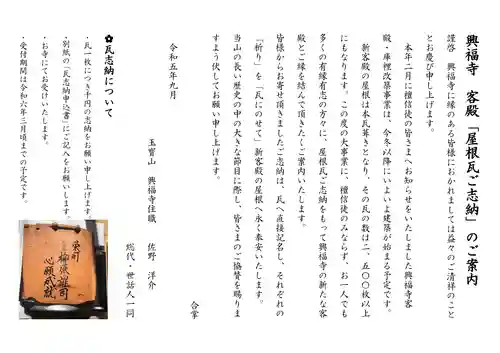 興福寺 客殿「屋根瓦ご志納」のご案内
謹啓 興福寺ご縁のある皆様におかれましては益々のご清祥のこと
とお慶び申し上げます。
本年二月に檀信徒の皆さまへお知らせをいたしました興福寺客
殿・庫裡改築事業は、今冬以降にいよいよ建築が始まる予定です。
新客殿の屋根は本瓦葺きとなり、その瓦の数は二、五〇〇枚以上
にもなります。この度の大事業に、檀信徒のみならず、お一人でも
多くの有縁有志の方々に、屋根瓦ご志納をもって興福寺の新たな客
殿とご縁を結んで頂きたくご案内いたします。
皆様からお寄せ頂きましたご志納は、瓦へ直接記名し、それぞれの
「祈り」を「瓦にのせて」新客殿の屋根へ永く奉安いたします。
当山の長い歴史の中の大きな節目に際し、皆さまのご協賛を賜りま
すよう伏してお願い申し上げます。
合掌
令和五年九月
玉寳山 興福寺住職 佐野 洋介
総代・世話人一同
✿瓦志納について
・瓦一枚につき千円の志納をお願い申し上げます。
・別紙の「瓦志納申込書」にご記入をお願いします。
・お寺にてお受けいたします。
・受付期間は令和六年三月頃までの予定です。
心願成就